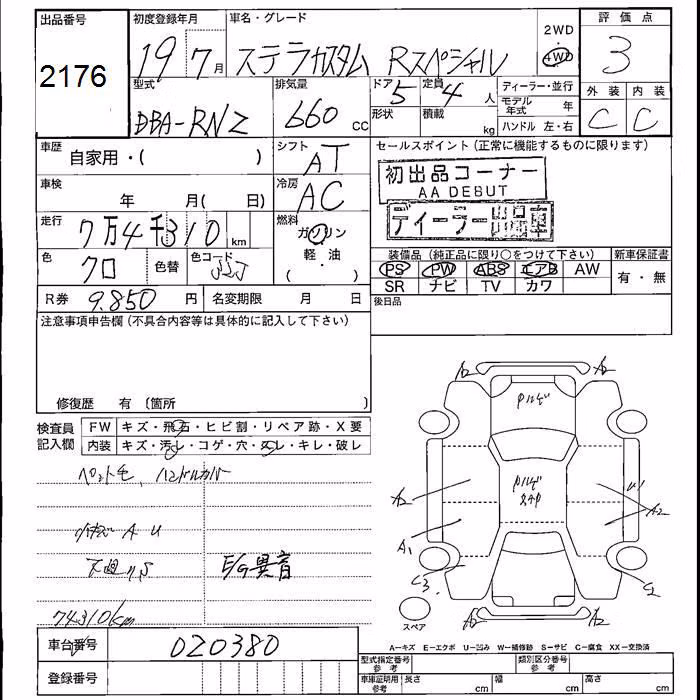 出品番号 初度登録年月 車名・グレード 2WD 評価点
2176 19 7月 ステラカスタム Rスペシャル 4WD 3
型式 排気量 ドア 定員 ディーラー・並行 外装 内装
DBA-RN2 660 cc 5 4人 モデル年式 年 C C
形状 積載 kg ハンドル 左・右
車歴 シフト セールスポイント (正常に機能するものに限ります)
自家用・( ) AT 初出品コーナー
AA DEBUT
車検 冷房
年 月( 日) AC ディーラー出品車
走行 燃料
7万4千310 km ガソリン
色 色替 色コード 軽・油 装備品 (純正品に限り○をつけて下さい) 新車保証書
クロ JJJ ( ) PS PW ABS エアB AW 有・無
SR ナビ TV カワ
R券 9.850円 名変期限 月 日 後日品
注意事項申告欄 (不具合内容等は具体的に記入して下さい)
修復歴 有 〔箇所 〕
検査員記入欄 FW キズ・飛石・ヒビ割・リペア跡・X要
内装 キズ・汚レ・コゲ・穴・スレ・キレ・破レ
ペット毛、ハンドルカバー
小キズ A U
下廻りS E/G異音
74310km
A2 A2
A2 A2
A1
C3 C2
A2 A2
スペア
A−キズ E−エクボ U−凹み W−補修跡 S−サビ C−腐食 XX−交換済
車台番号 020380
登録番号
型式指定番号 参考 類別区分番号 参考
車庫証明用 参考 長さ cm 幅 cm 高さ cm